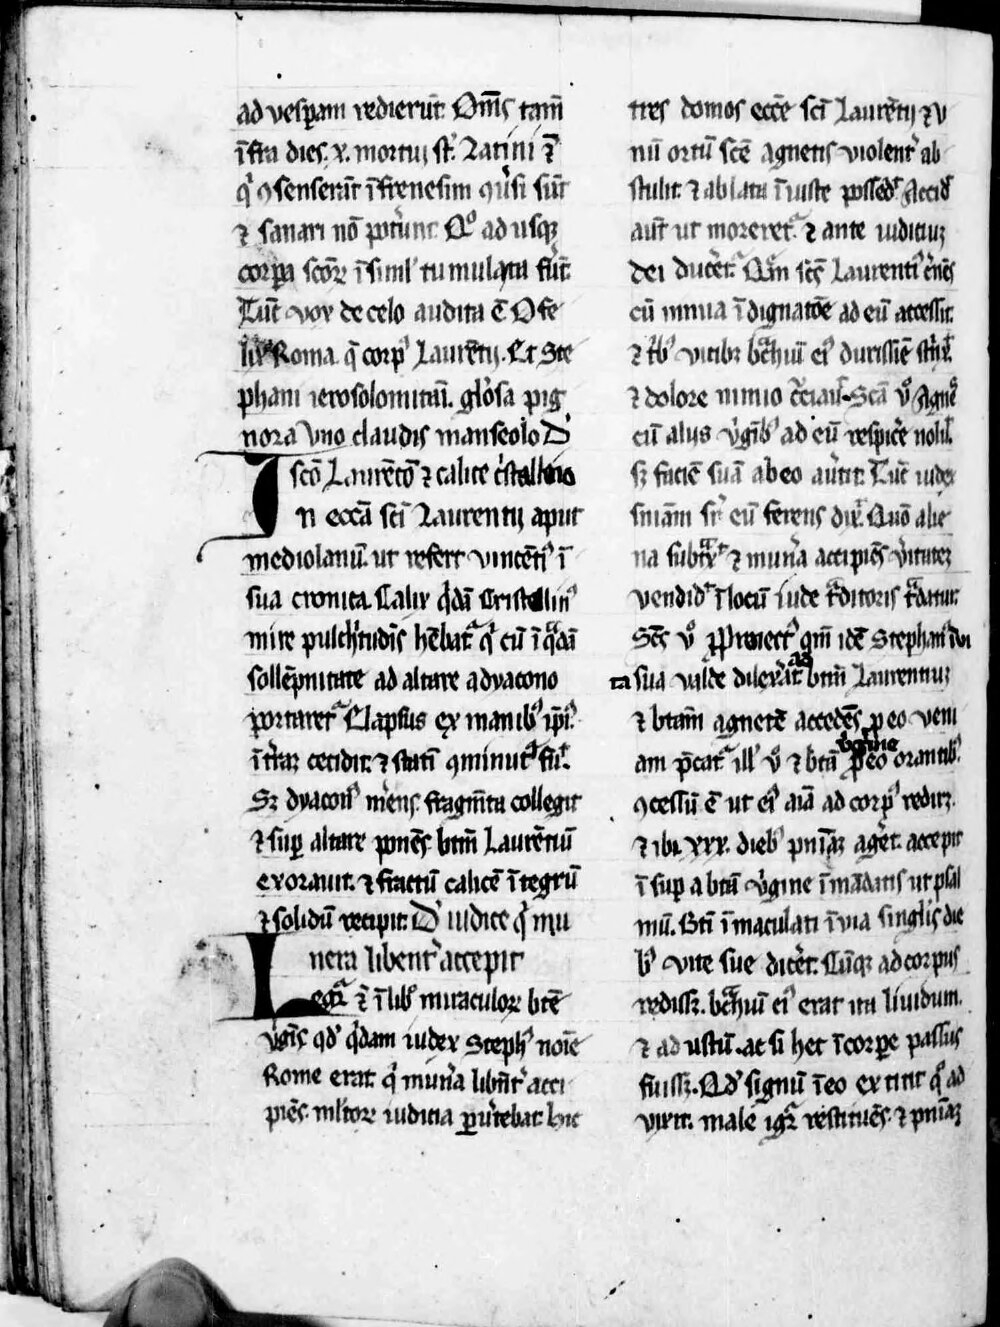 ad vesꝑam redierūt. Om̄s tam̄
īfra dies. x. mortuj st̄. Latini ⁊
q̇ ꝯsenserūt ī frenesim ꝯv̇si sūt
⁊ sanari nō potuerūt. Qͦ ad usqꝫ
corpa scōꝝ īsimlˡ tumulata fūt.
Tūc vox de celo audita ē O fe
lix Roma. q̄ corpꝰ Laurētij. Et Ste
phani ierosolomitāi. glōsa pig
nora Vno claudis mauseolo Dˀ
scō Laurētō ⁊ calice c̓stallino
In eccā sci Laurentij aput
mediolanū. ut refert vincētiꝰ ī
sua cronica. Calix q̇dā Cristallinꝰ
mire pulchʳtudīs hēbat̉ q̇ cū ī q̇dā
sollēpnitate ad altare a dyacono
portaret̉ Elapsus ex manibꝰ ip̄iꝰ.
ī t̓rā cecidit. ⁊ statī ꝯminutꝰ fuīt.
Sꝫ dyaconꝰ mēns fragm̄ta collegit
⁊ suꝑ altare ponēs btm̄ Laurētiū
exorauit. ⁊ fractū calicē ītegrū
⁊ solidū recipit. Dˀ iudice q̇ mu
nera libent̓ accepit
Legit̉ ⁊ ī libꝰ miraculoꝝ btē
v̓gīs qđ q̇dam iudex Stephꝰ noīe
Rome erat. q̇ mun̓a libnt̓ acci
piēs. ml̓toꝝ iudicia ꝑu̓tebat. hic
tres domos ecc̄e sci Laurētij ⁊ v
nū ortū scē agnetis violent̓ ab
stulit. ⁊ ablata īiuste possedꝰ Accid̓
aūt ut moreret̉ ⁊ ante iudiciuꝫ
dei duc̓et̉. Quē scs̄ Laurentiꝰ c̓nēs
cū mīna īdignatōe ad eū accessit.
⁊ tbꝰ vicibꝫ bchiū eiꝰ durissīe st̓nx̄.
⁊ dolore nimio c̓ciauīt. Scā vͦ Agneˢ
cū alijs v̓gībꝰ ad eū respic̓e noluīt.
sꝫ faciē suā ab eo av̓tit. Tūc iudex
sniam sr̄ eū ferens dix̄. Quō alie
na subtᵃxit ⁊ mun̓a accipiēs v̓itatē
vendidꝰ ī locū iude tᵃditoris tᵃdatur.
Scs̄ vͦ P̄proiectꝰ qm̄ idē Stephanꝰ ī vi
ta sua valde dilex̓at ad btm̄ Laurentiuꝫ
⁊ btam agnetē accedēs ꝑ eo veni
am p̄cat̉ illˡ vͦ ⁊ btā v̓gine ꝑ eo orantibꝰ.
ꝯcessū ē ut eiꝰ aīa ad corpꝰ rediret.
⁊ ibi XXX. diebꝰ pnīaꝫ aget. accepit
īsuꝑ a btā v̓gine ī mādatis ut psal
mū. Bti īmaculati ī via singlis die
bꝰ vite sue dic̓et. Cūqꝫ ad corpus
redissꝫ. bchiū eiꝰ erat ita liuidum.
⁊ adustū. ac si hec ī corpe passus
fuissꝫ. Qđ signū ī eo extitit q̇ ad
vixit. male igit̉ restituēs. ⁊ pnīaꝫ